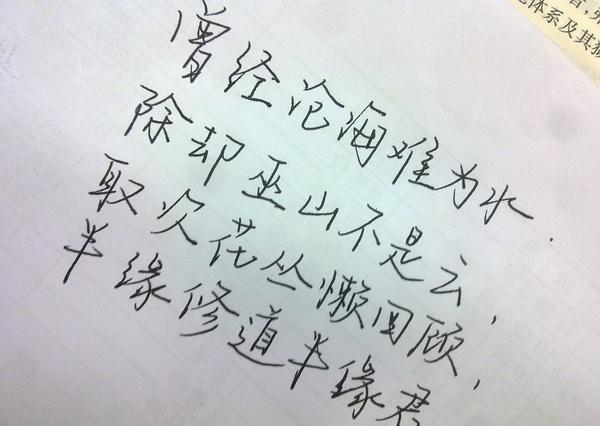 曾经沧海难为水.
除却巫山不是云,
取次花丛懒回顾,
半缘修道半缘君
体系及其